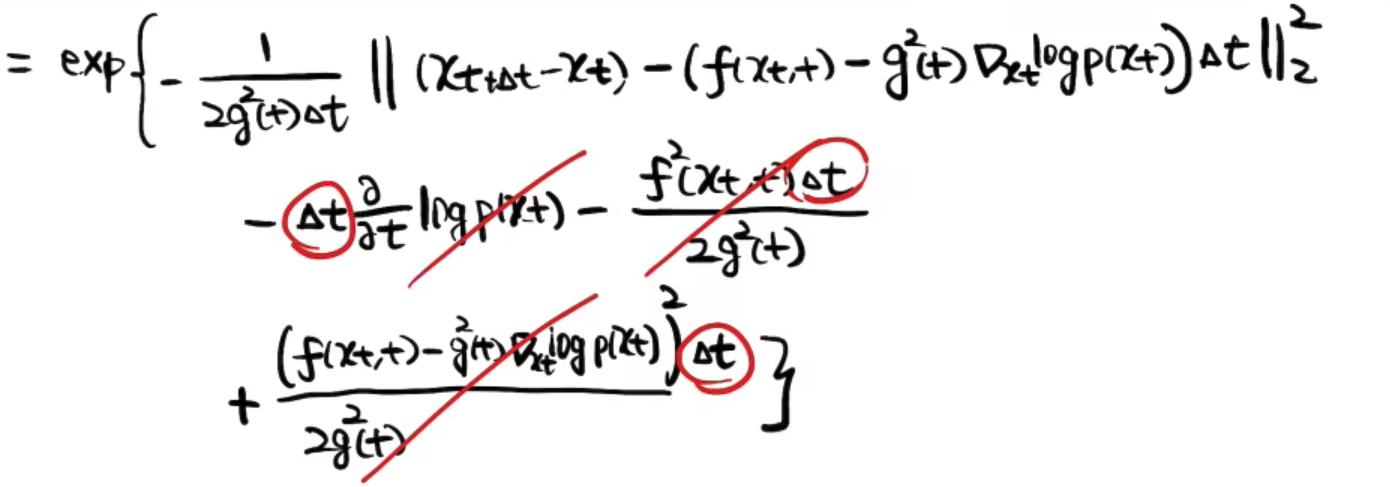 = exp{ - \frac{1}{2g²(t)Δt} || (x_{t+Δt} - x_t) - (f(x_t,t) - g²(t) ∇_{x_t} log p(x_t)) Δt ||_2^2
- Δt \frac{∂}{∂t} log p(x_t) - \frac{f²(x_t,t)Δt}{2g²(t)}
+ \frac{(f(x_t,t) - g²(t) ∇_{x_t} log p(x_t))² Δt}{2g²(t)} }